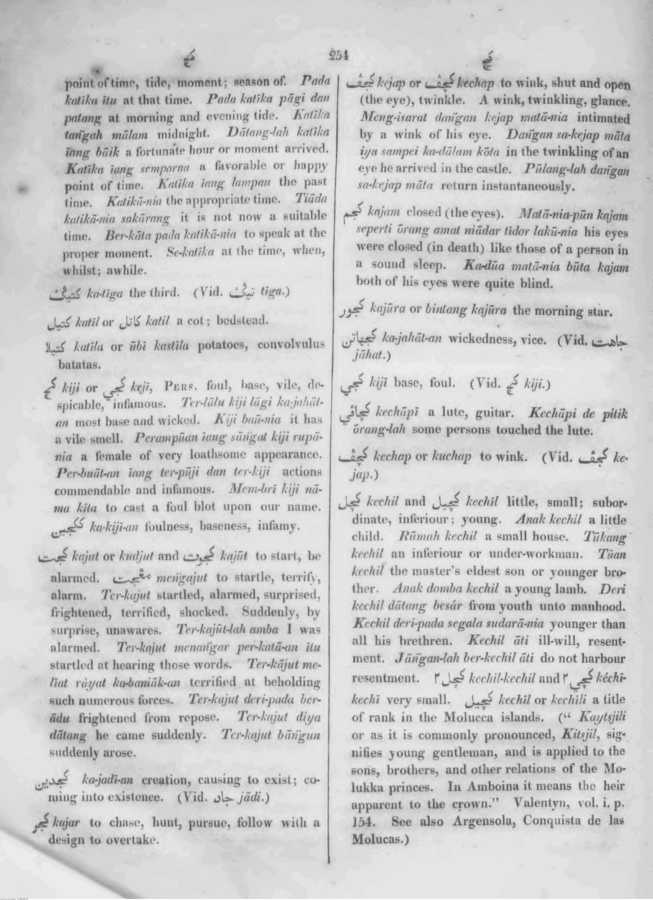 كچ
254
كچ
point of time, tide, moment; season of. Pada
katīka ītu at that time. Pada katīka pāgi dan
patang at morning and evening tide. Katīka
tañgah mālam midnight. Dātang-lah katīka
īang bāik a fortunate hour or moment arrived.
Katīka īang semporna a favorable or happy
point of time. Katīka īang lampau the past
time. Katikā-nia the appropriate time. Tīāda
katikā-nia sakārang it is not now a suitable
time. Ber-kāta pada katikā-nia to speak at the
proper moment. Se-katīka at the time, when,
whilst; awhile.
ka-tīga the third. (Vid. tīga.)
كتيل katīl or كاتل katil a cot; bedstead.
كتيلا katīla or ūbi kastīla potatoes, convolvulus
batatas.
كج kiji or كجي kejī, Pers. foul, base, vile, de-
spicable, infamous. Ter-lālu kiji lāgi ka-jahāt-
an most base and wicked. Kiji baū-nia it has
a vile smell. Perampūan īang sāñgat kiji rupā-
nia a female of very loathsome appearance.
Per-buāt-an īang ter-pūji dan ter-kiji actions
commendable and infamous. Mem-brī kiji nā-
ma kīta to cast a foul blot upon our name.
ka-kiji-an foulness, baseness, infamy.
كجت kajut or kudjut and كجوت kajūt to start, be
alarmed. meñgajut to startle, terrify,
alarm. Ter-kajut startled, alarmed, surprised,
frightened, terrified, shocked. Suddenly, by
surprise, unawares. Ter-kajūt-lah amba I was
alarmed. Ter-kajut menañgar per-katā-an ītu
startled at hearing those words. Ter-kājut me-
līat rāyat ka-baniāk-an terrified at beholding
such numerous forces. Ter-kajut deri-pada ber-
ādu frightened from repose. Ter-kajut dīya
dātang he came suddenly. Ter-kajut bāñgun
suddenly arose.
كجدين ka-jadī-an creation, causing to exist; co-
ming into existence. (Vid. جاد jādi.)
كجر kajar to chase, hunt, pursue, follow with a
design to overtake.
kejap or kechap to wink, shut and open
(the eye), twinkle. A wink, twinkling, glance.
Meng-isarat dañgan kejap matā-nia intimated
by a wink of his eye. Dañgan sa-kejap māta
iya sampei ka-dālam kōta in the twinkling of an
eye he arrived in the castle. Pūlang-lah dañgan
sa-kejap māta return instantaneously.
كجم kajam closed (the eyes). Matā-nia-pūn kajam
seperti ōrang amat mādar tidor lakū-nia his eyes
were closed (in death) like those of a person in
a sound sleep. Ka-dūa matā-nia būta kajam
both of his eyes were quite blind.
كجور kajūra or bintang kajūra the morning star.
كجهاتن ka-jahāt-an wickedness, vice. (Vid. جاهت
jāhat.)
كجي kijī base, foul. (Vid. كج kiji.)
كچافي kechāpi a lute, guitar. Kechāpi de pītik
ōrang-lah some persons touched the lute.
kechap or kuchap to wink. (Vid. ke-
jap.)
كچل kechil and كچيل kechīl little, small; subor-
dinate, inferiour; young. Anak kechil a little
child. Rūmah kechil a small house. Tūkang
kechil an inferiour or under-workman. Tūan
kechil the master's eldest son or younger bro-
ther. Anak domba kechil a young lamb. Deri
kechil dātang besār from youth unto manhood.
Kechil deri-pada segala sudarā-nia younger than
all his brethren. Kechil āti ill-will, resent-
ment. Jāñgan-lah ber-kechil āti do not harbour
resentment. كچل٢ kechil-kechil and كچي٢ kéchi-
kechī very small. كچيل kechīl or kechīli a title
of rank in the Molucca islands. (" Kaytsjili
or as it is commonly pronounced, Kitsjil, sig-
nifies young gentleman, and is applied to the
sons, brothers, and other relations of the Mo-
lukka princes. In Amboina it means the heir
apparent to the crown." Valentyn, vol. i. p.
154. See also Argensola, Conquista de las
Molucas.)